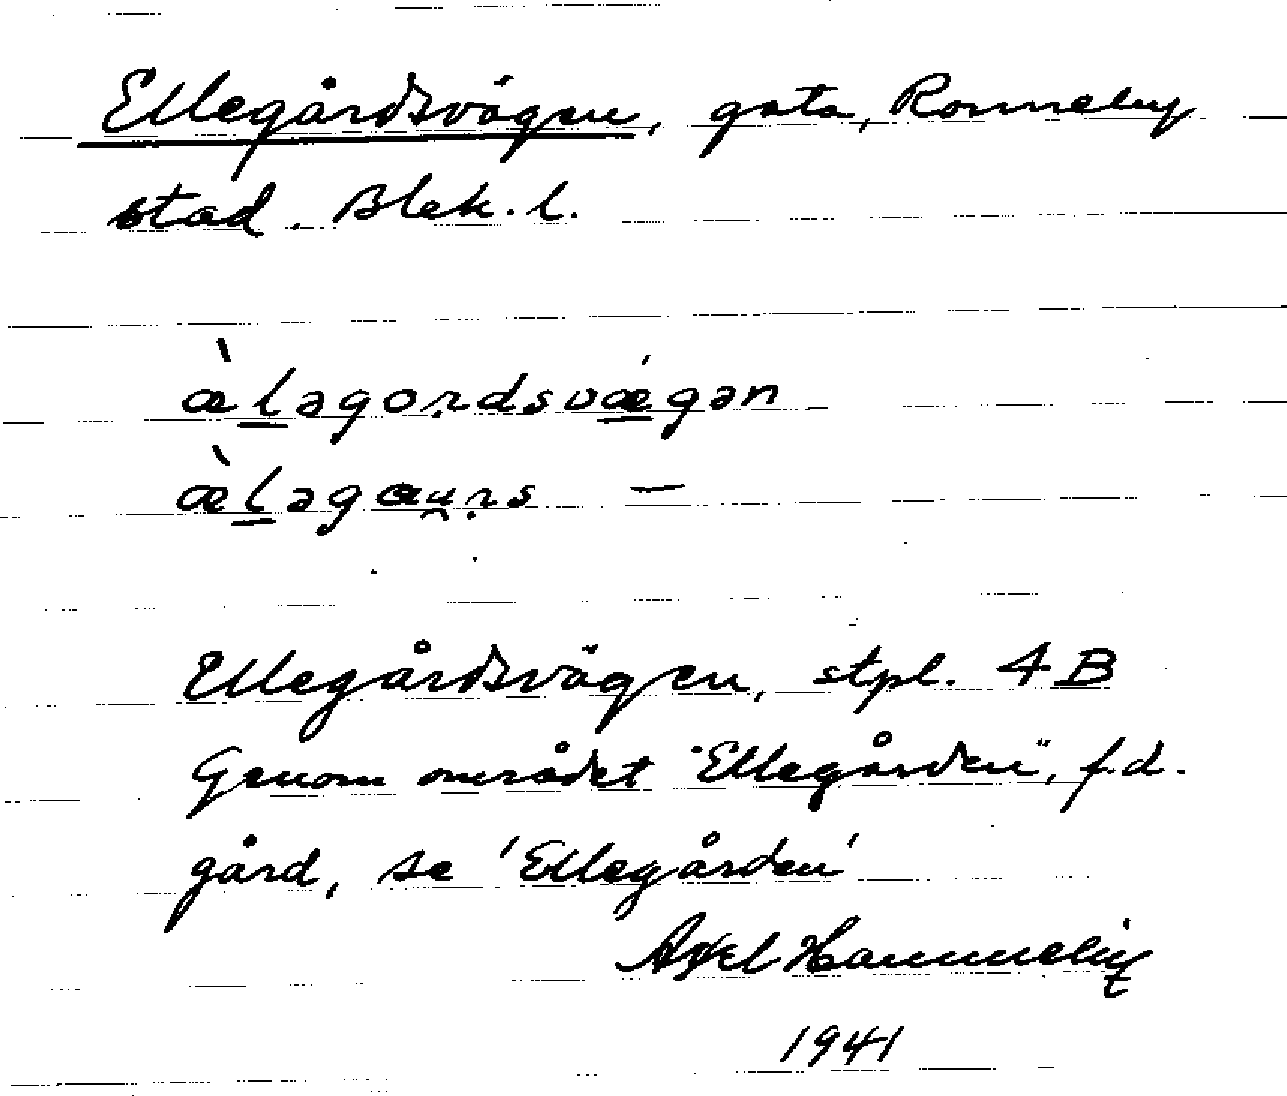 Ellegårdsvägen, gata, Ronneby
stad. Blek. l.
æ̀ləgoṛdsvǽgən
æ̀ləgaṷṛs —
Ellegårdsvägen, stpl. 4 B
Genom området "Ellegården", f.d.
gård, se 'Ellegården'
Axel
1941